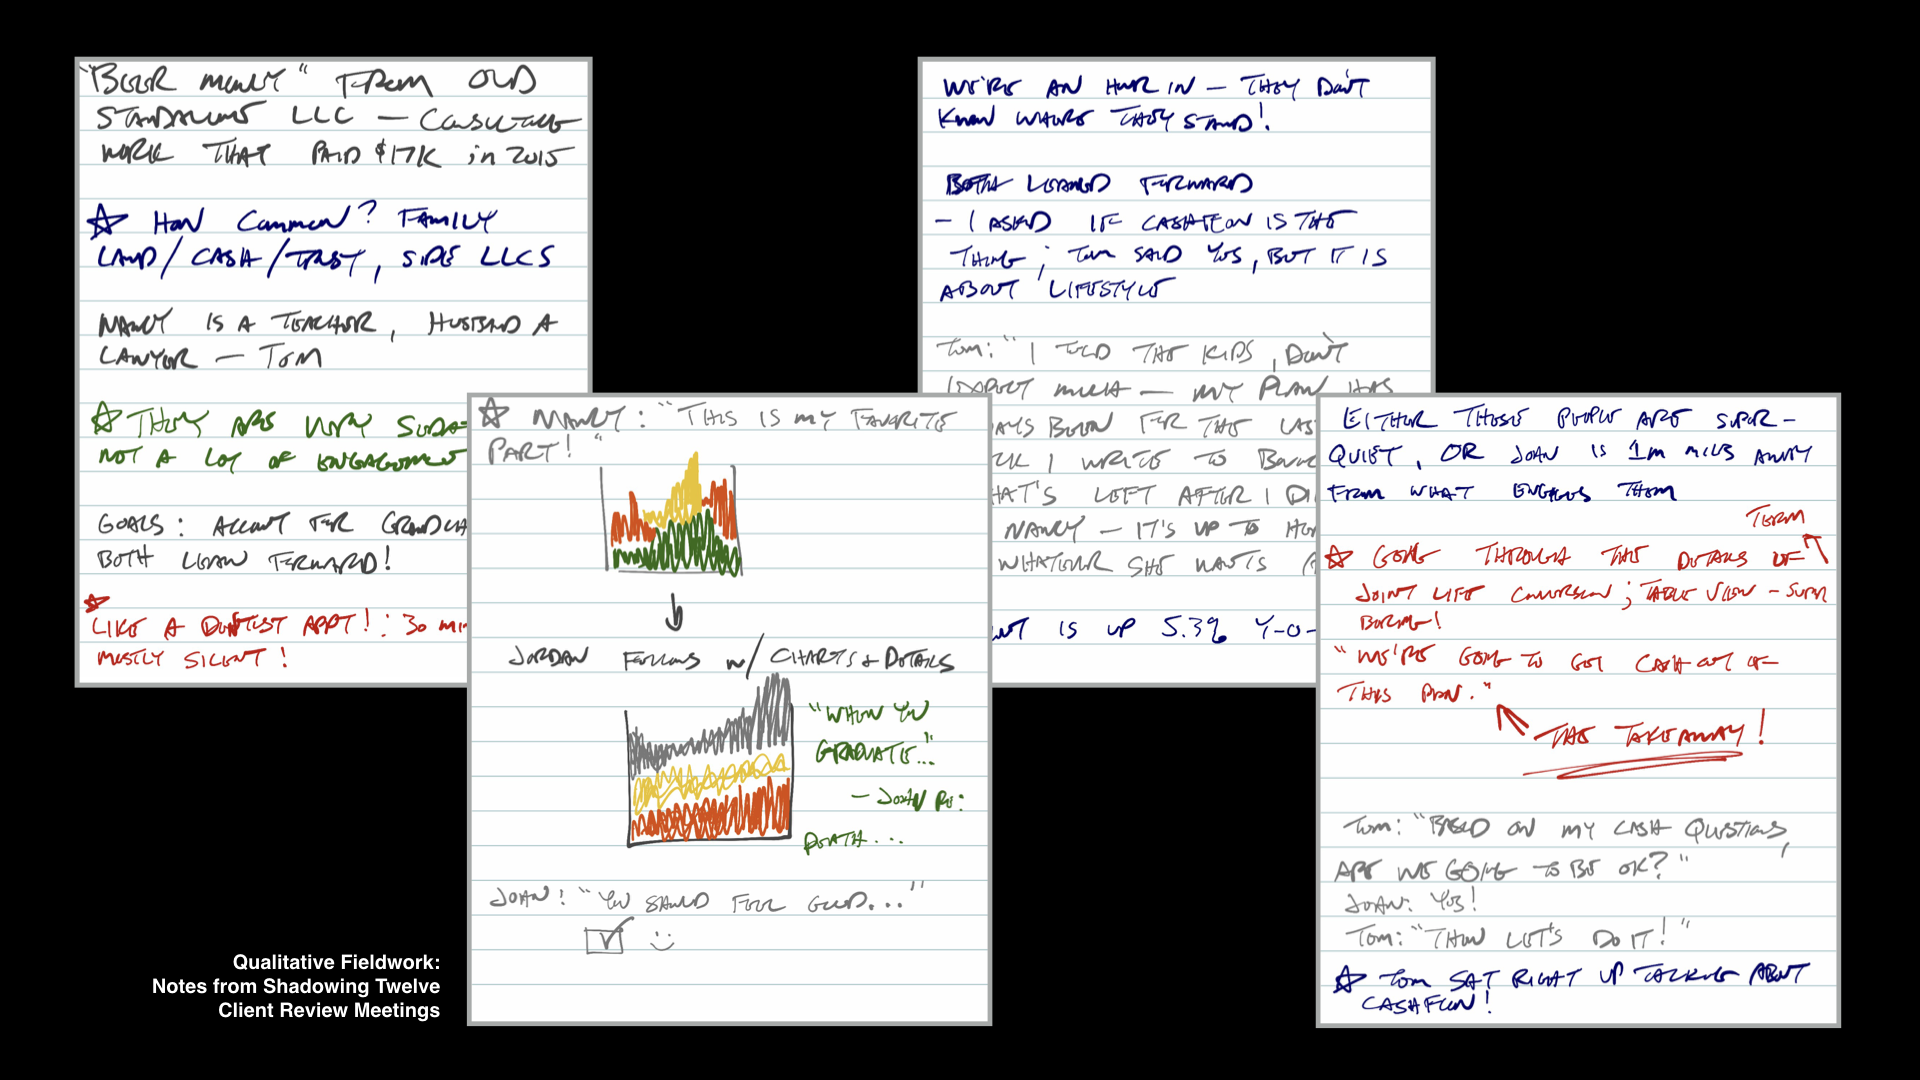 "BEER MONEY" FROM OLD
STANDALONE LLC — CONSULTING
WORK THAT PAID $17K in 2015
☆ HOW COMMON? FAMILY
LAND/CASH/TRUST, SIDE LLCS
NANCY IS A TEACHER, HUSBAND A
LAWYER — TOM
☆ THEY ARE VERY
NOT A LOT OF ENGAGEMENT
GOALS: ACCOUNT FOR
BOTH LEAN FORWARD!
☆
LIKE A DENTIST APPT!: 30
MOSTLY SILENT!
☆ NANCY: "THIS IS MY FAVORITE
PART!"
JORDAN FOLLOWS w/ CHARTS + DETAILS
"WHEN YOU
GRADUATE..."
— JOAN RE:
DEATH...
JOAN: "YOU SHOULD FEEL GOOD..."
WE'RE AN HOUR IN — THEY DON'T
KNOW WHERE THEY STAND!
BOTH LEANED FORWARD
- I ASKED IF CASHFLOW IS THE
THING; TOM SAID YES, BUT IT IS
ABOUT LIFESTYLE
TOM: "I TOLD THE KIDS, DON'T
EXPECT MUCH — MY PLAN HAS
BEEN FOR THE
I WRITE TO
LEFT AFTER I
NANCY — IT'S UP TO
WHATEVER SHE WANTS
IS UP 5.3% Y-O-
EITHER THESE PEOPLE ARE SUPER-
QUIET, OR JOAN IS 1M MILES AWAY
FROM WHAT ENGAGES THEM
TERM
☆ GOING THROUGH THE DETAILS OF
JOINT LIFE CONVERSION; TABLE VIEW — SUPER
BORING!
"WE'RE GOING TO GET CASH OUT OF
THIS PLAN."
THE TAKEAWAY!
TOM: "BASED ON MY CASH QUESTIONS,
ARE WE GOING TO BE OK?"
JOAN: YES!
TOM: "THEN LET'S DO IT!"
☆ TOM SAT RIGHT UP TALKING ABOUT
CASHFLOW!
Qualitative Fieldwork:
Notes from Shadowing Twelve
Client Review Meetings